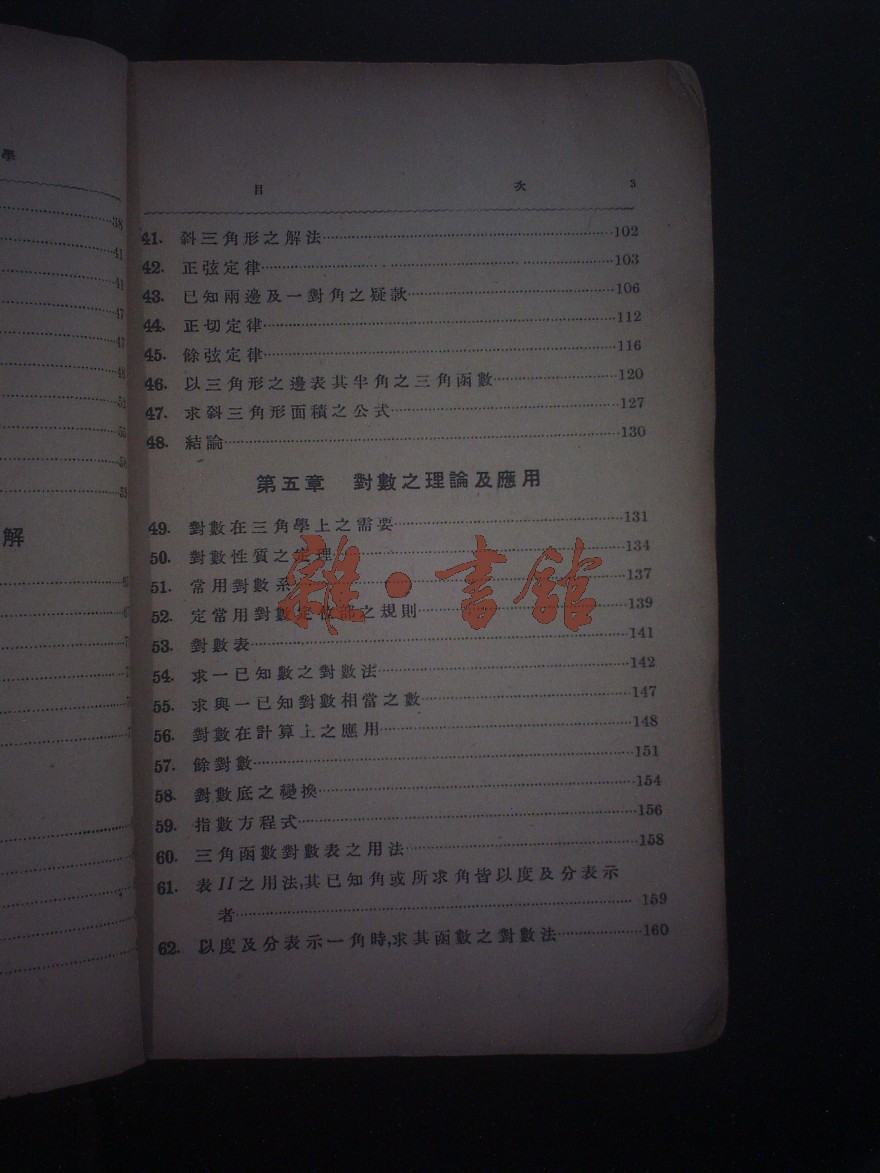 學
38
41
41
47
47
48
解
目 次 3
41. 斜三角形之解法 102
42. 正弦定律 103
43. 已知兩邊及一對角之疑款 106
44. 正切定律 112
45. 餘弦定律 116
46. 以三角形之邊表其半角之三角函數 120
47. 求斜三角形面積之公式 127
48. 結論 130
第五章 對數之理論及應用
49. 對數在三角學上之需要 131
50. 對數性質之定理 134
51. 常用對數系 137
52. 定常用對數定位部之規則 139
53. 對數表 141
54. 求一已知數之對數法 142
55. 求與一已知對數相當之數 147
56. 對數在計算上之應用 148
57. 餘對數 151
58. 對數底之變換 154
59. 指數方程式 156
60. 三角函數對數表之用法 158
61. 表II之用法,其已知角或所求角皆以度及分表示
者 159
62. 以度及分表示一角時,求其函數之對數法 160
雜·書館